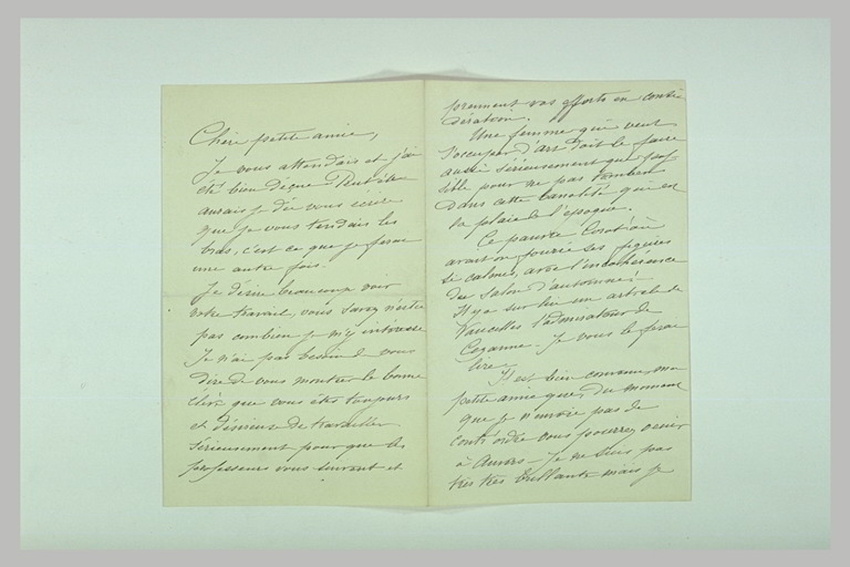 Chère petite amie,
Je vous attendais et j'ai
été bien déçue Peut être
aurais je dû vous écrire
que je vous tendais les
bras, c'est ce que je ferai
une autre fois.
Je désire beaucoup voir
votre travail, vous savez n'est ce
pas combien je m'y intéresse
Je n'ai pas besoin de vous
dire de vous montrer la bonne
élève que vous êtes toujours
et désireuse de travailler
sérieusement pour que les
professeurs vous suivent et
prennent vos efforts en consi
dération.
Une femme qui veut
s'occuper d'art doit le faire
aussi sérieusement que pos
sible pour ne pas tomber
dans cette banalité qui est
la plaie de l'époque.
Ce pauvre Corot où
avait on fourré ses figures
si calmes, avec l'incohérence
du Salon d'automne!
Il y a sur lui un article de
Vauxelles l'admirateur de
Cezanne. Je vous le ferai
lire.
Il est bien convenu, ma
petite amie que, du moment
que je n'envoie pas de
contr'ordre vous pourrez venir
à Auvers – Je ne suis pas
très très brillante mais je